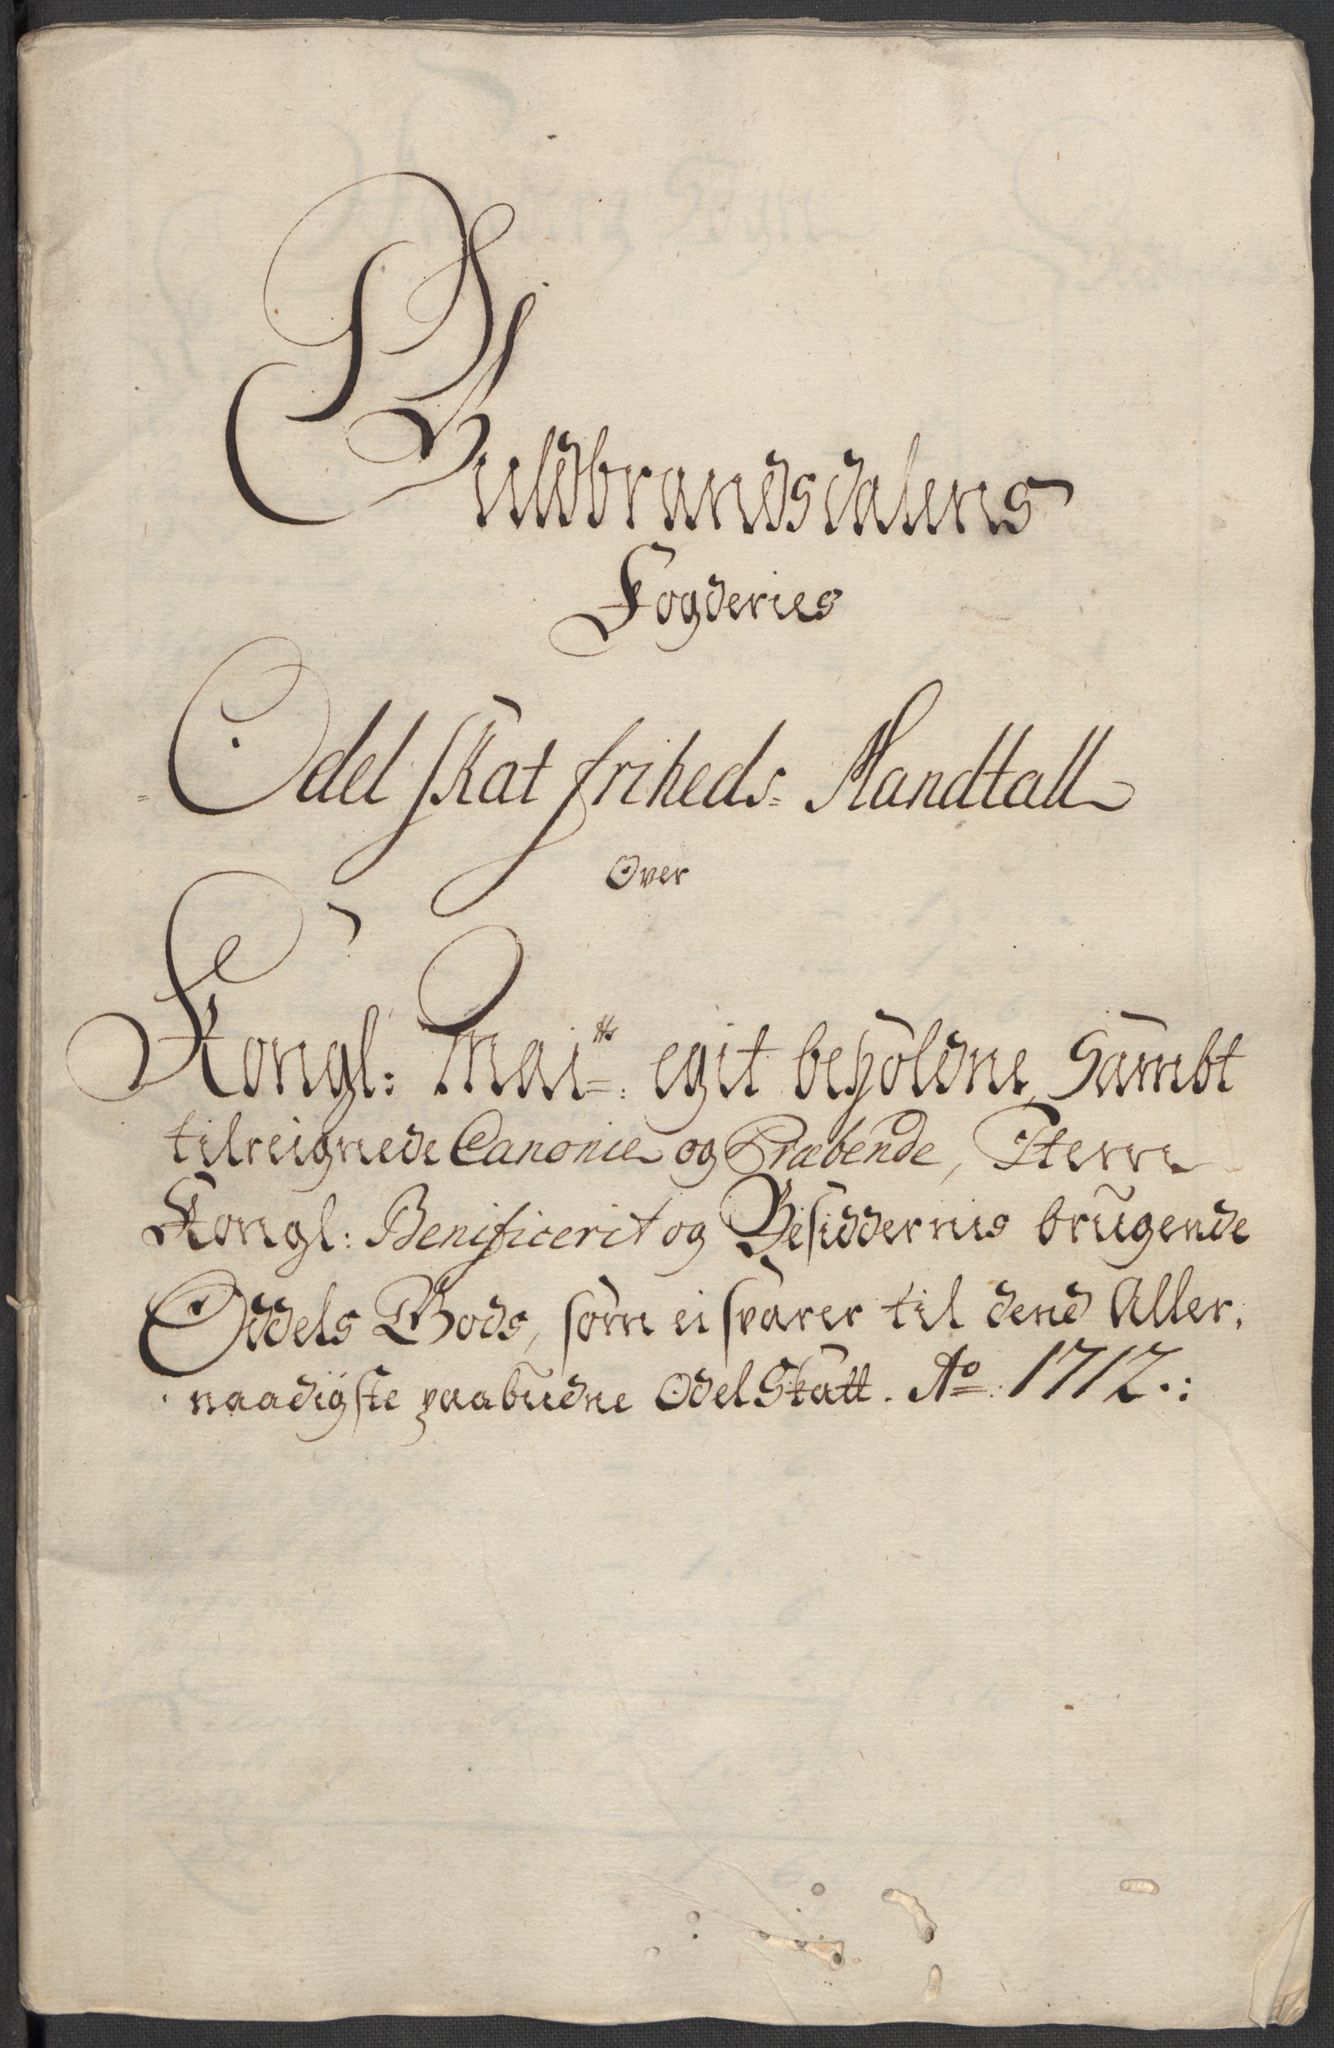 Guldbrandsdalens
Fogderies
Odel skat friheds= Mandtall
Over
Kongl: Mai<sup>ts</sup>: egit beholdne, Sambt
tilreignede Canonie og Præbende, Item
Kongl: Benificerit og Besiddernis brugende
Oddels Gods, som ei svarer til dend Aller,
naadigste paabudne Odel Skatt. Ao: 1712.: